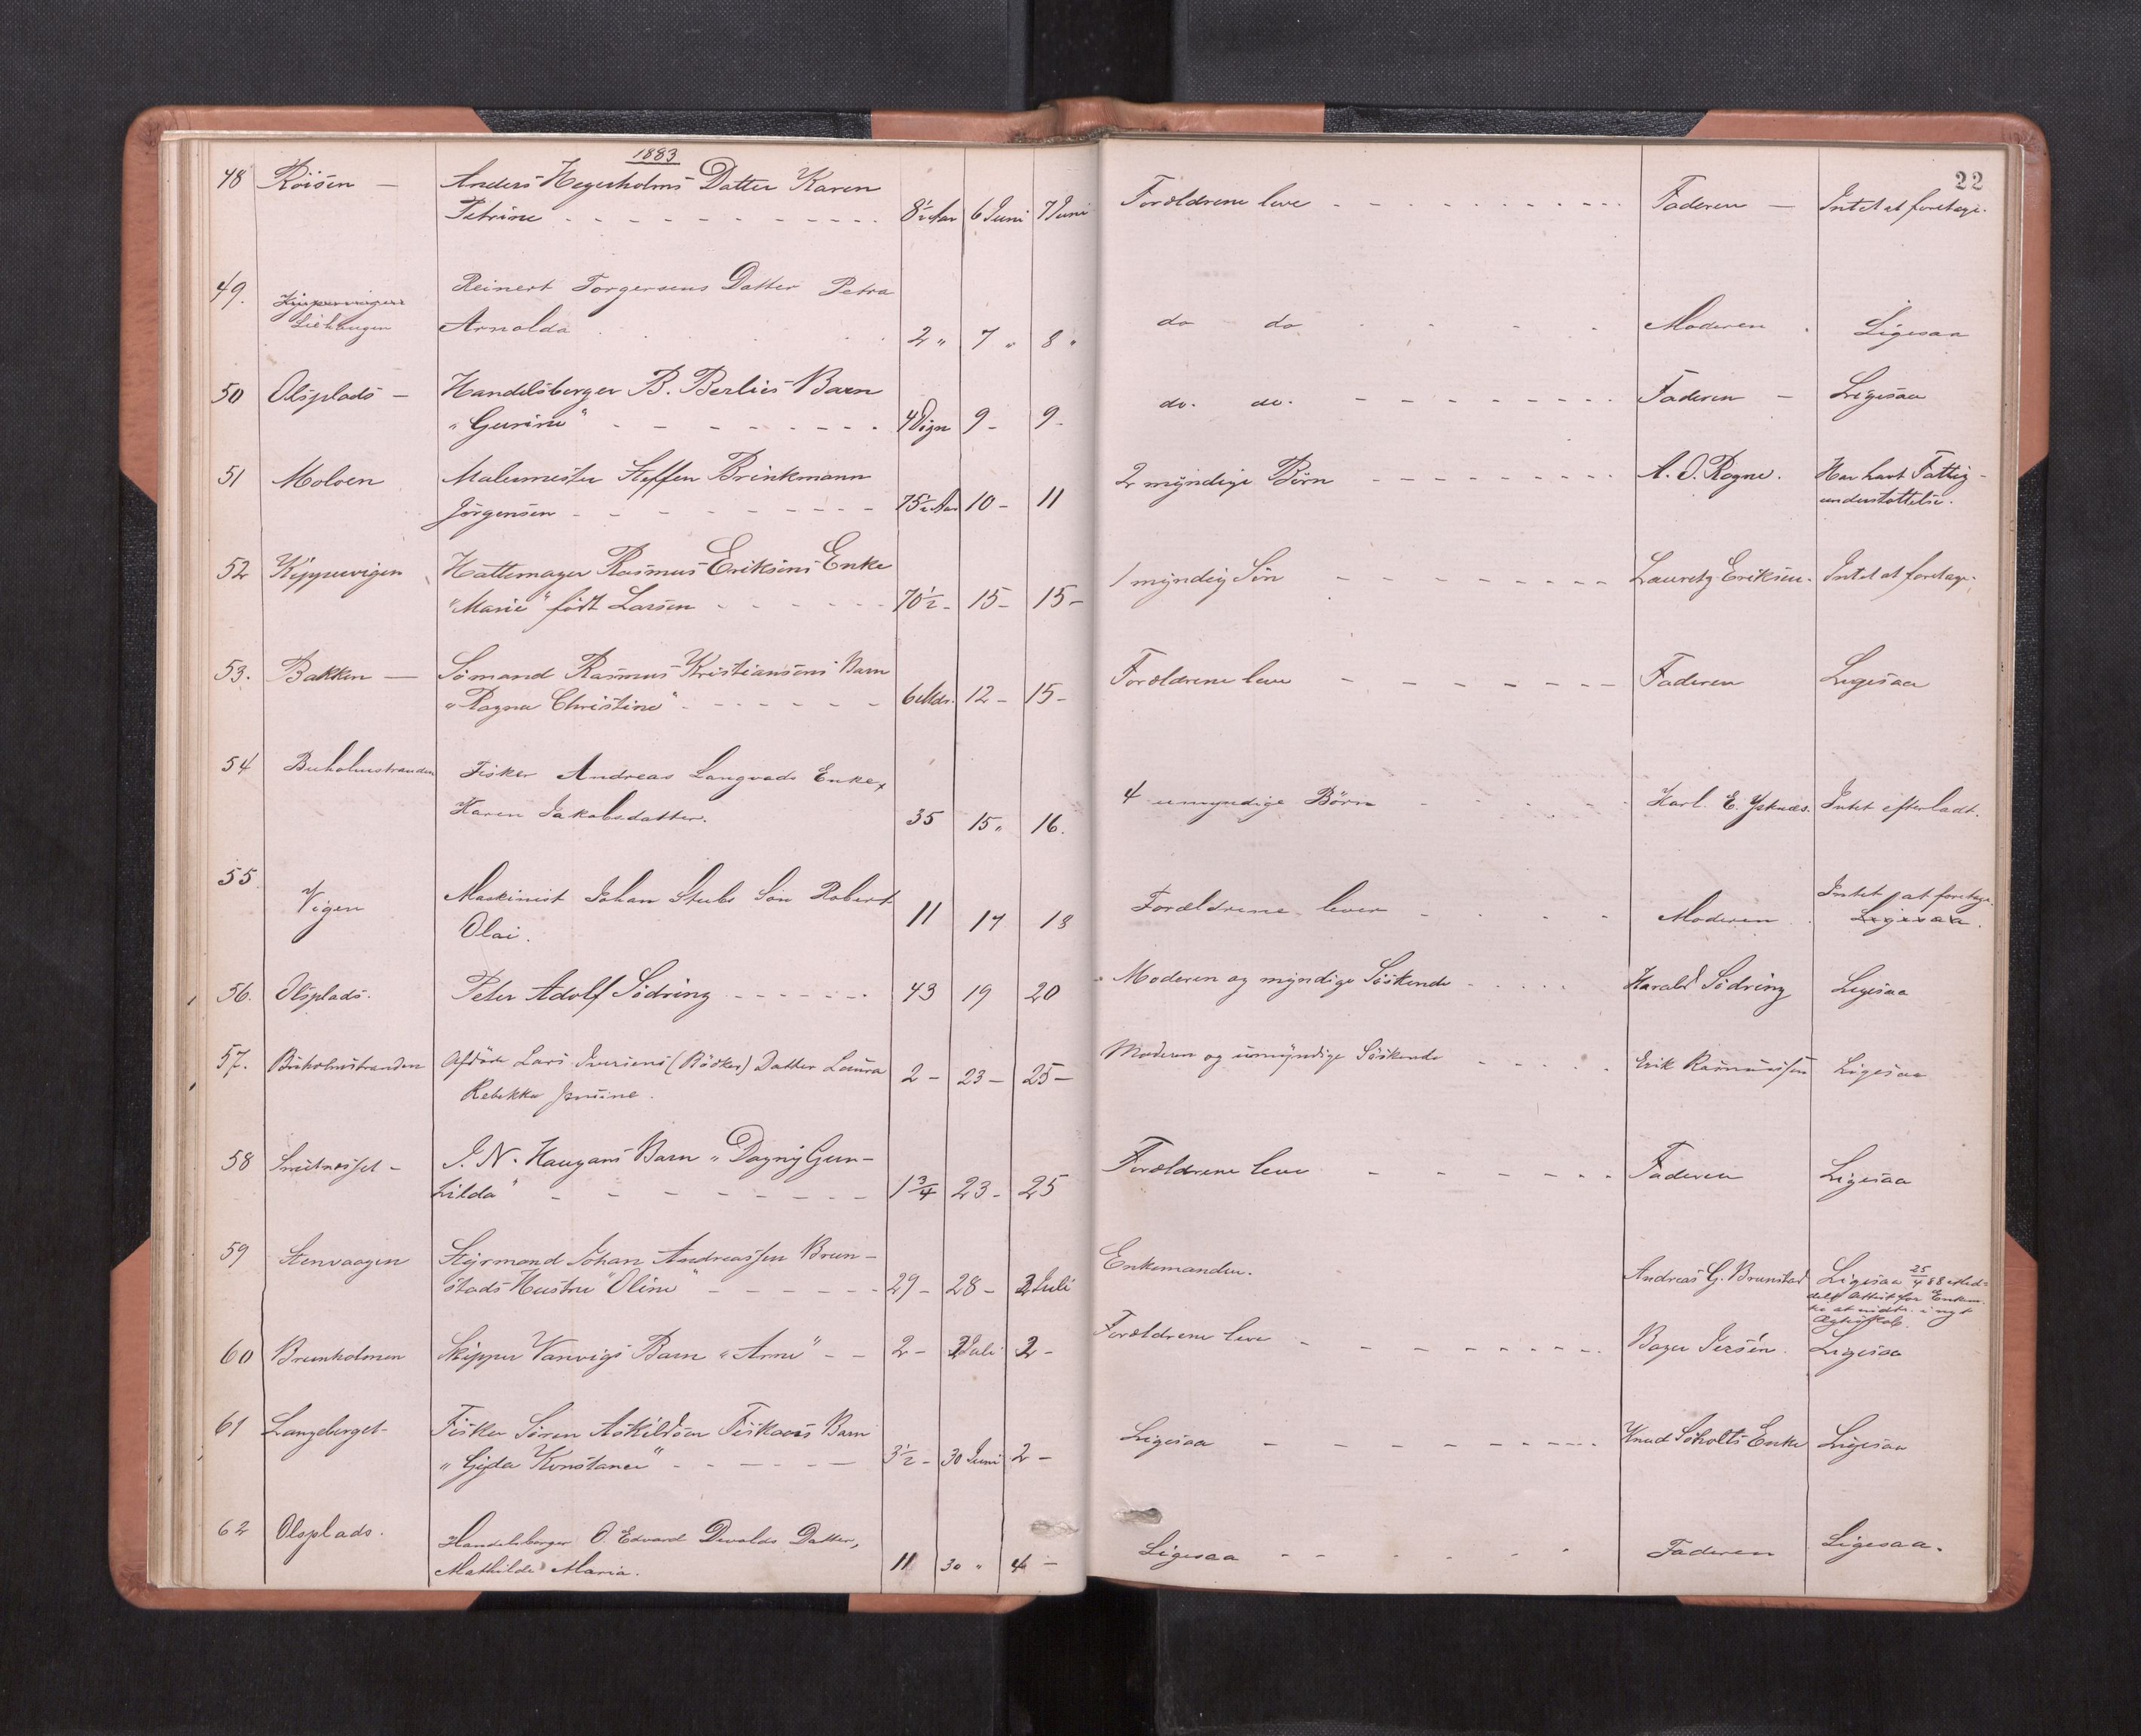 1883
22
48 Röisen — Anders Hegerholms Datter Karen
Petrine 8½ Aar 6 Juni 7 Juni Forældrene leve Faderen — Intet at foretage.
49. Reinert Torgersens Datter Petra
Liehaugen Arnolda 2 " 7 " 8 " do do Moderen. Ligesaa
50 Olsplads — Handelsborger B. Berlies Barn
"Gurine" 4 Dign 9 - 9 - do. do. Faderen — Ligesaa
51 Moloen Malermester Steffen Brinkmann
Jörgensen 75½ Aar 10 - 11 2 myndige Börn A. O. Rogne. Har havt Fattig-
understøttelse.
52 Kippervigen Hattemager Rasmus Eriksens Enke
"Marie" født Larsen 70½ - 15 - 15 - 1 myndig Sön Lauretz Eriksen. Intet at foretage.
53. Bakken — Sömand Rasmus Kristiansens Barn
"Ragna Christine" 6 Mdr. 12 - 15 - Forældrene leve Faderen Ligesaa
54 Buholmstranden Fisker Andreas Langvads Enke,
Karen Jakobsdatter. 35 15 " 16. 4 umyndige Börn Karl E. Intet efterladt.
55. Vigen Maskinist Johan Stubs Sön Robert
Olai. 11 17 18 Forældrene lever Moderen. Intet at foretage.
Ligesaa.
56. Olsplads. Peter Adolf Södring 43 19 20 Moderen og myndige Söskende Harald Södring Ligesaa
57. Buholmstranden Afdöde Lars Iversens (Bödker) Datter Laura
Rebekka 2 - 23 - 25 - Moderen og umyndige Söskende Erik Rasmussen Ligesaa
58 J. N. Haugans Barn "Dagny Gun-
hilda" 1¾ 23 - 25 Forældrene leve Faderen Ligesaa
59 Stenvaagen Styrmand Johan Andreassen Brun-
stads Hustru "Oline" 29 - 28 - 2 Juli Enkemanden. Andreas G. Brunstad Ligesaa 25/4 88 Med-
delt Attest for Enkem.
i nyt
Ægteskab.
60 Brunholmen Skipper Vanvigs Barn "Arne" 2 - 2 Juli 2 - Forældrene leve Ligesaa
61 Langeberget - Fisker Sören Askildsen Fiskaas Barn
"Gyda Konstance" 3½ - 30 Juni 2 - Ligesaa Knud Söholts Enke Ligesaa
62 Olsplads. Handelsborger O. Edvard Devolds Datter,
Mathilde Maria. 11 30 " 4 - Ligesaa Faderen Ligesaa.